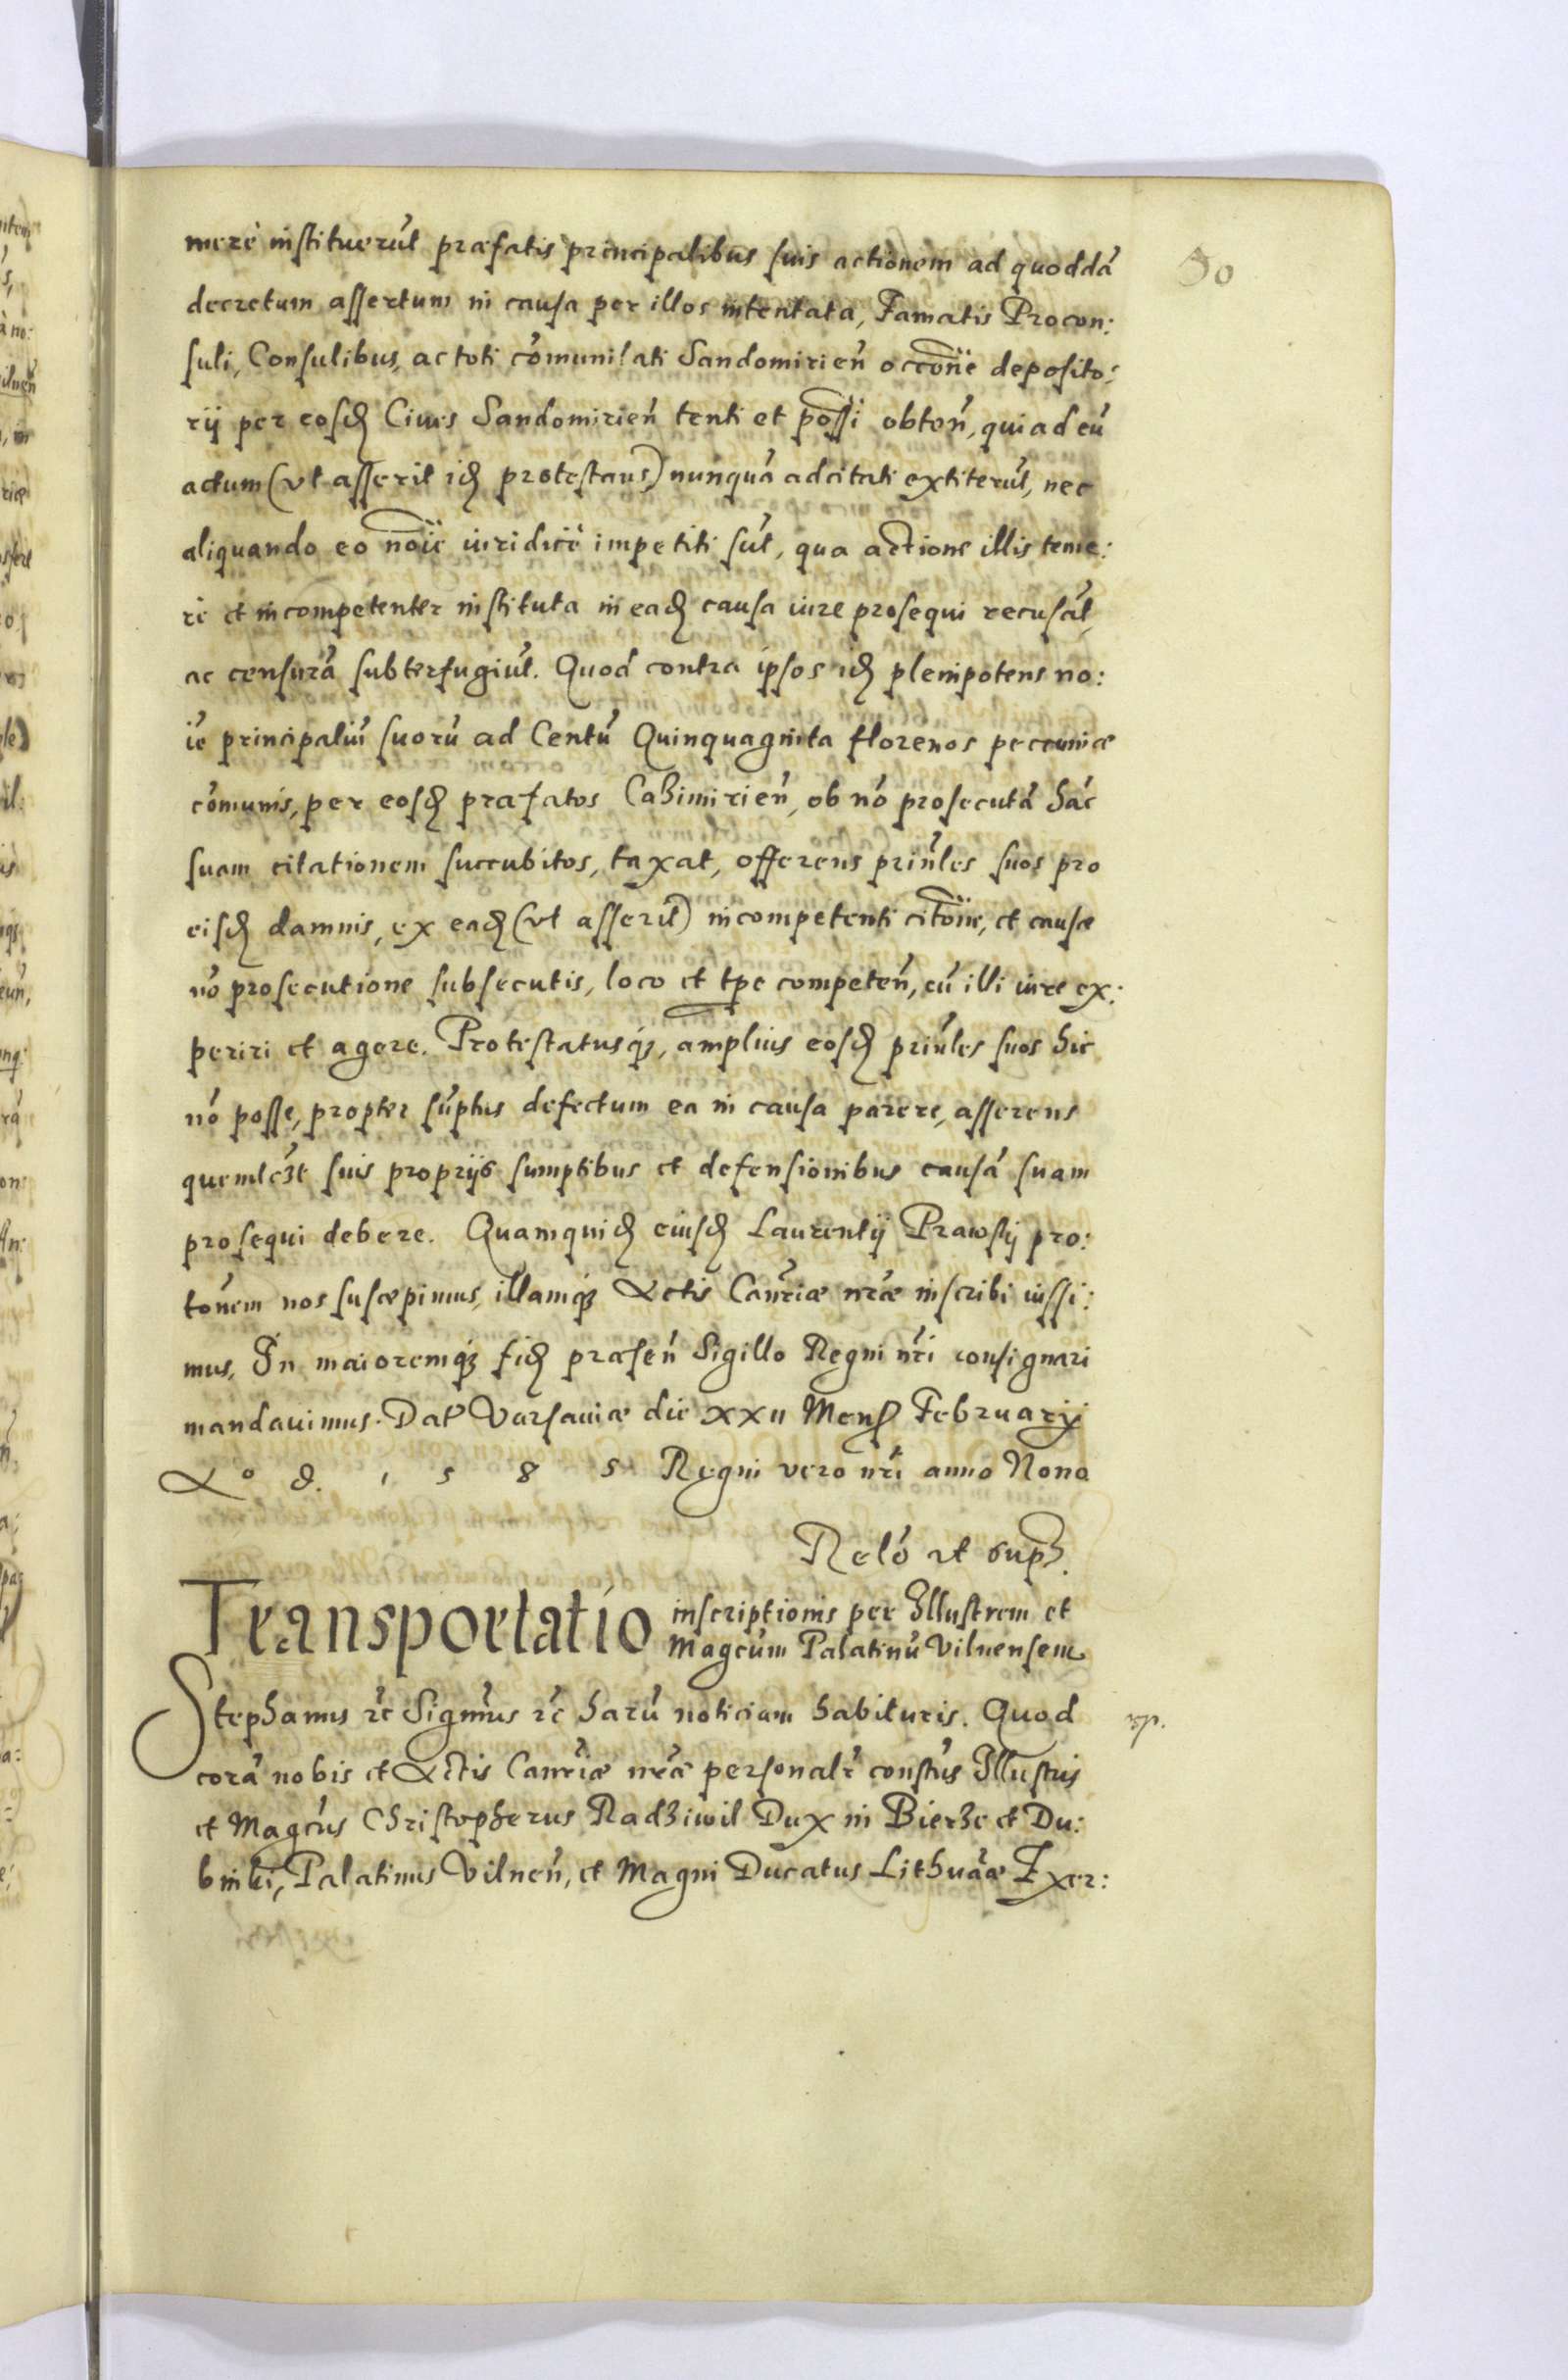 50
mere instituerūt præfatis principalibus suis actionem ad quoddā
decretum assertum in causa per illos intentata, Famatis Procon:
suli, Consulibus, ac toti cōmunitati Sandomirien̄ occōne deposito:
rij per eosd Ciues Sandomirien̄ tenti et possi obten̄, qui ad eū
actum (vt asserit id protestans) nunquā adcitati extiterūt, nec
aliquando eo noīe iuridicè impetiti sūt, qua actione illis teme:
rè et incompetenter instituta in ead causa iure prosequi recusāt,
ac censurā subterfugiūt. Quod contra ipsos id plenipotens no:
īe principaliū suorū ad Centū Quinquaginta florenos peccuniæ
cōmunis, per eosd præfatos Cazimirien̄, ob nō prosecutā hāc
suam citationem succubitos, taxat, offerens prin̄les suos pro
eisd damnis, ex ead (vt asserit) incompetenti citōne, et causæ
nō prosecutione subsecutis, loco et tpe competen̄, cū illi iure ex:
periri et agere. Protestatusq3, amplius eosd prin̄les suos hic
nō posse, propter sūptus defectum ea in causa parere, asserens
quemlc3t suis proprijs sumptibus et defensionibus causā suam
prosequi debere. Quamquid eiusd Laurentij Prawskij pro:
tōnem nos suscepimus, illamq3 Actis Canc̄riæ nr̄æ inscribi iussi:
mus, In maioremq3 fid præsen̄ Sigillo Regni nr̄i consignari
mandauimus. Dat Varsauiæ die XXII Mens Februarij
Aº d. 1 5 8 5 Regni vero nr̄i anno Nono
Relō vt sup.
Transportatio inscriptionis per Illustrem et
Magcūm Palatinū Vilnensem
Stephanus rc̄ Sigm̄us rc̄ harū noticiam habituris. Quod
corā nobis et Actis Canc̄riæ nr̄æ personalr̄ constūs Illustris
rp.
et Magcūs Christopherus Radziwil Dux in Bierze et Du:
binki, Palatinus Vilnen̄, et Magni Ducatus Lithuāæ Exer: